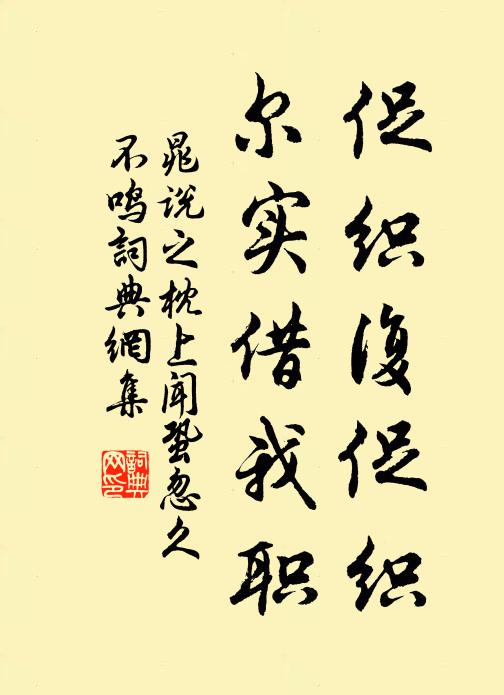 促织复促织
尔实借我职
晁说之枕上闻蛩忽久
不鸣詞典網集
詞典
网印